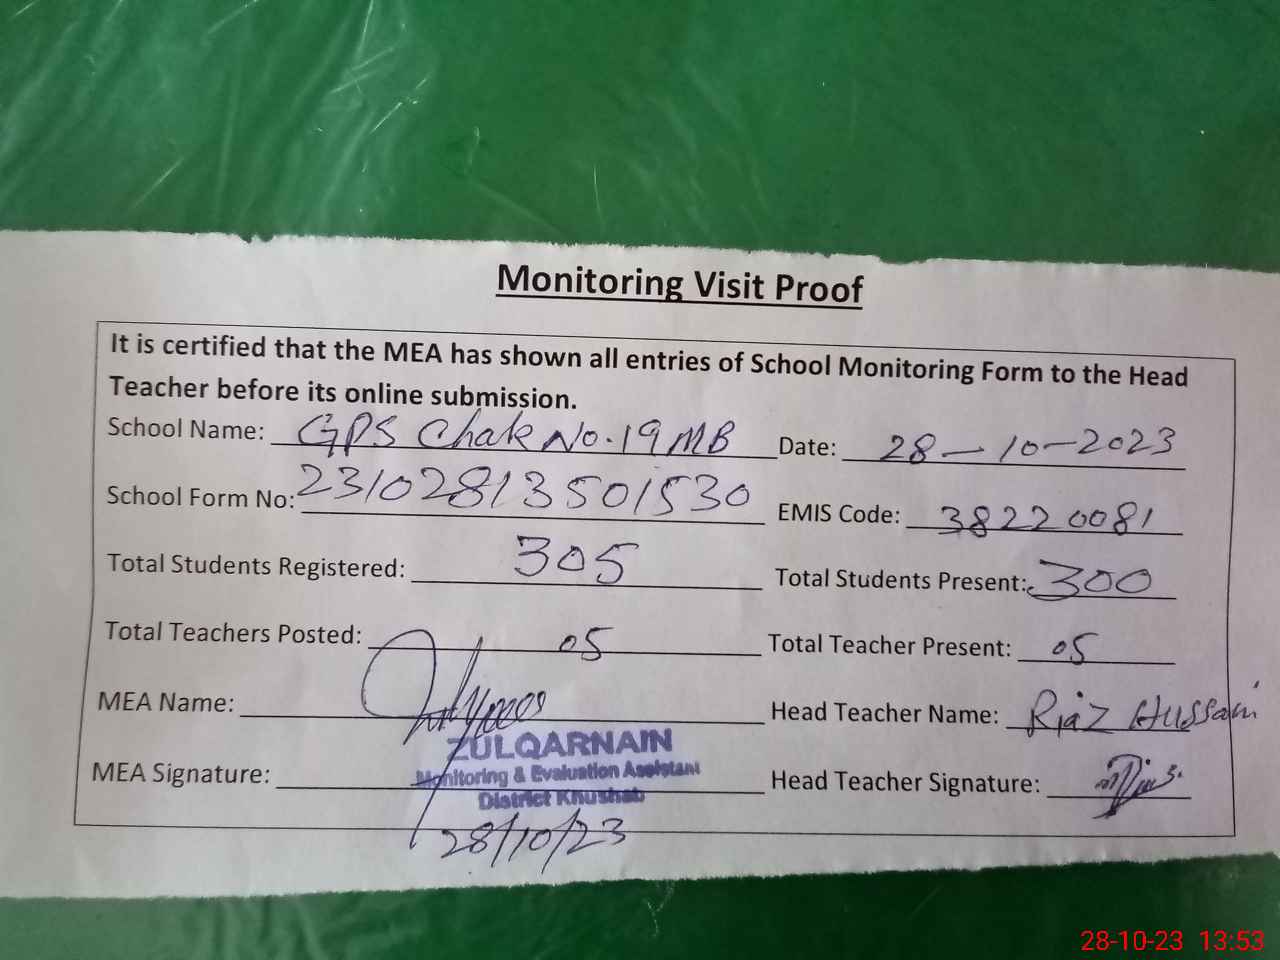 Monitoring Visit Proof
It is certified that the MEA has shown all entries of School Monitoring Form to the Head
Teacher before its online submission.
School Name: GPS Chak No. 19 MB Date: 28-10-2023
School Form No: 23102813501530 EMIS Code: 38220081
Total Students Registered: 305 Total Students Present: 300
Total Teachers Posted: 05 Total Teacher Present: 05
MEA Name: Head Teacher Name: Riaz Hussain
ZULQARNAIN
Monitoring & Evaluation Assistant
MEA Signature: Head Teacher Signature:
District Khushab
28/10/23
28-10-23 13:53